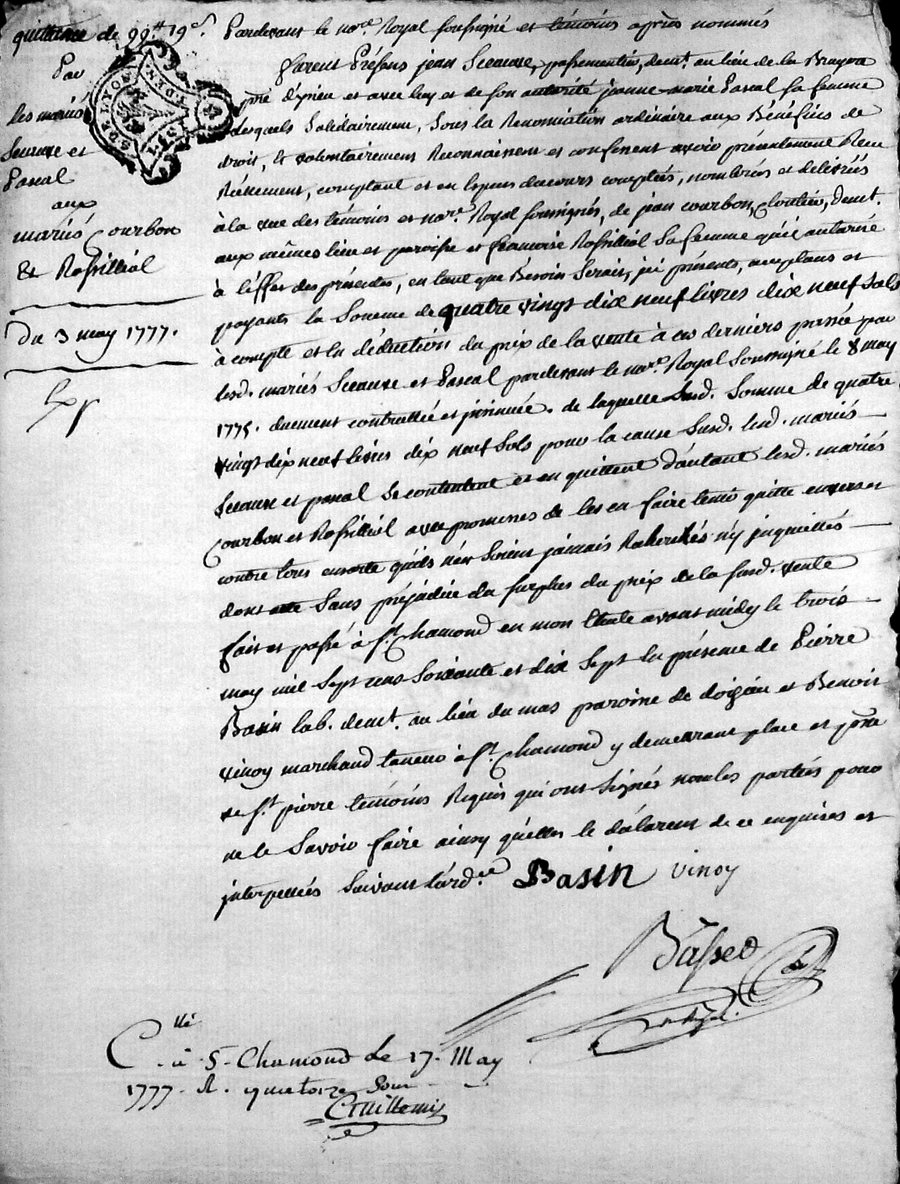 quittance de 99tt 19s.
Par
les mariés
Sceauve et
Pascal
aux
mariés Courbon
Et Rossilliol
Du 3 may 1777.
Pardevant le nore. Royal soussigné et témoins après nommés
furent Présens jean Sceauve, passementier, demt. au lieu de la
psse d'izieu et avec luy et de son autorité jeanne-marie Pascal sa femme
Lesquels Solidairement, Sous la Renonciation ordinaire aux Bénéfices de
droit, et volontairement Reconnaissent et confessent avoir présentement Reçu
Réellement, comptant et en espèces de cours comptées, nombrées et délivrées
à la vue des témoins et nore. Royal soussignés, de jean courbon, cloutier, demt.
aux mêmes lieu et paroisse et françoise Rossilliol Sa femme qu'il autorise
à l'effet des présentes, en tant que Besoin Serait, ici présents, acceptans et
payants la Somme de quatre vingt dix neuf livres dix neuf Sols
à compte et en déduction du prix de la vente à ces derniers passée par
lesd. mariés Sceauve et Pascal pardevant le nore. Royal Soussigné le 8 may
1775. duement controllée et insinuée. de laquelle Susd. Somme de quatre
vingt dix neuf livres dix neuf Sols pour la cause Susd. lesd. mariés
Sceauve et pascal Se contentent et en quittent d'autant lesd. mariés
Courbon et Rossilliol avec promesses de les en faire tenir quitte envers et
contre tous ensorte qu'ils n'en Soient jamais Recherchés n'y inquiettés
dont acte Sans préjudice du Surplus du prix de la susd. vente
fait et passé à St. chamond en mon Etude avant midy le trois
may mil Sept cens Soixante et dix Sept En présence de Pierre
Basin lab. demt. au lieu du mas paroisse de doizieu et Benoit
vinoy marchand taneur à St. chamond y demeurant place et psse
de St. pierre témoins Requis qui ont Signés non les parties pour
ne le Savoir faire ainsy qu'elles le déclarent de ce enquises et
interpellées Suivant l'ordce. Basin vinoy
C.llé à St. Chamond Le 17. May
1777. R. quatorze Sous
Guillemin